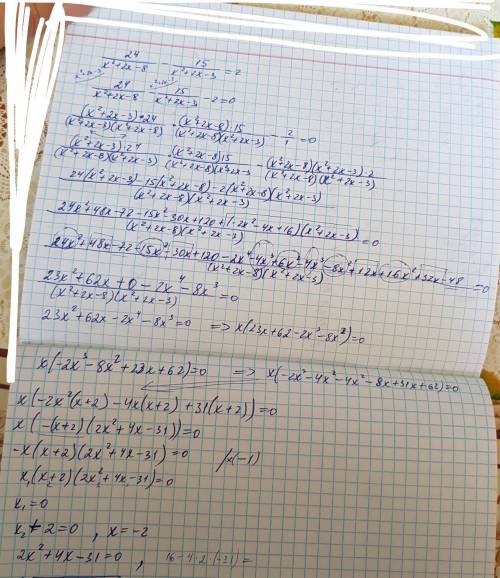 24/(x²+2x-8) - 15/(x²+2x-3) = 2
24/(x²+2x-8) - 15/(x²+2x-3) - 2 = 0
(x²+2x-3)·24/(x²+2x-3)(x²+2x-8) - (x²+2x-8)·15/(x²+2x-8)(x²+2x-3) - 2/1 = 0
(x²+2x-3)·24/(x²+2x-8)(x²+2x-3) - (x²+2x-8)15/(x²+2x-8)(x²+2x-3) - (x²+2x-8)(x²+2x-3)·2/(x²+2x-8)(x²+2x-3)
24(x²+2x-3)-15(x²+2x-8)-2(x²+2x-8)(x²+2x-3)/(x²+2x-8)(x²+2x-3)
24x²+48x-72-15x²-30x+120+(-2x²-4x+16)(x²+2x-3)/(x²+2x-8)(x²+2x-3) = 0
24x²+48x-72-15x²-30x+120-2x⁴-4x³+6x²-4x³-8x²+12x+16x²+32x-48/(x²+2x-8)(x²+2x-3) = 0
23x²+62x+0-2x⁴-8x³/(x²+2x-8)(x²+2x-3) = 0
23x²+62x-2x⁴-8x³=0 => x(23x+62-2x³-8x²)=0
x(-2x³-8x²+23x+62)=0 => x(-2x³-4x²-4x²-8x+31x+62)=0
x(-2x²(x+2)-4x(x+2)+31(x+2))=0
x(-(x+2)(2x²+4x-31))=0
-x(x+2)(2x²+4x-31)=0 /×(-1)
x₁(x₂+2)(2x²+4x-31)=0
x₁=0
x₂+2=0, x=-2
2x²+4x-31=0, 16-4·2·(-31)=